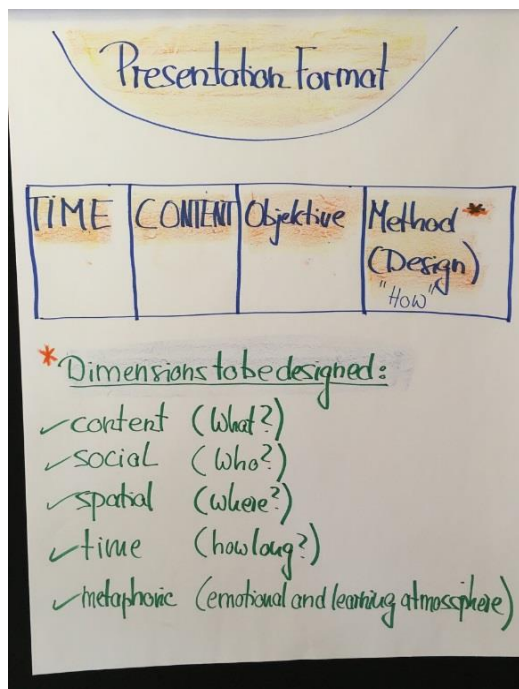 Presentation Format
TIME CONTENT Objektive Method *
(Design)
"How"
* Dimensions to be designed:
✓ content (What?)
✓ social (Who?)
✓ spatial (where?)
✓ time (how long?)
✓ metaphoric (emotional and learning atmossphere)